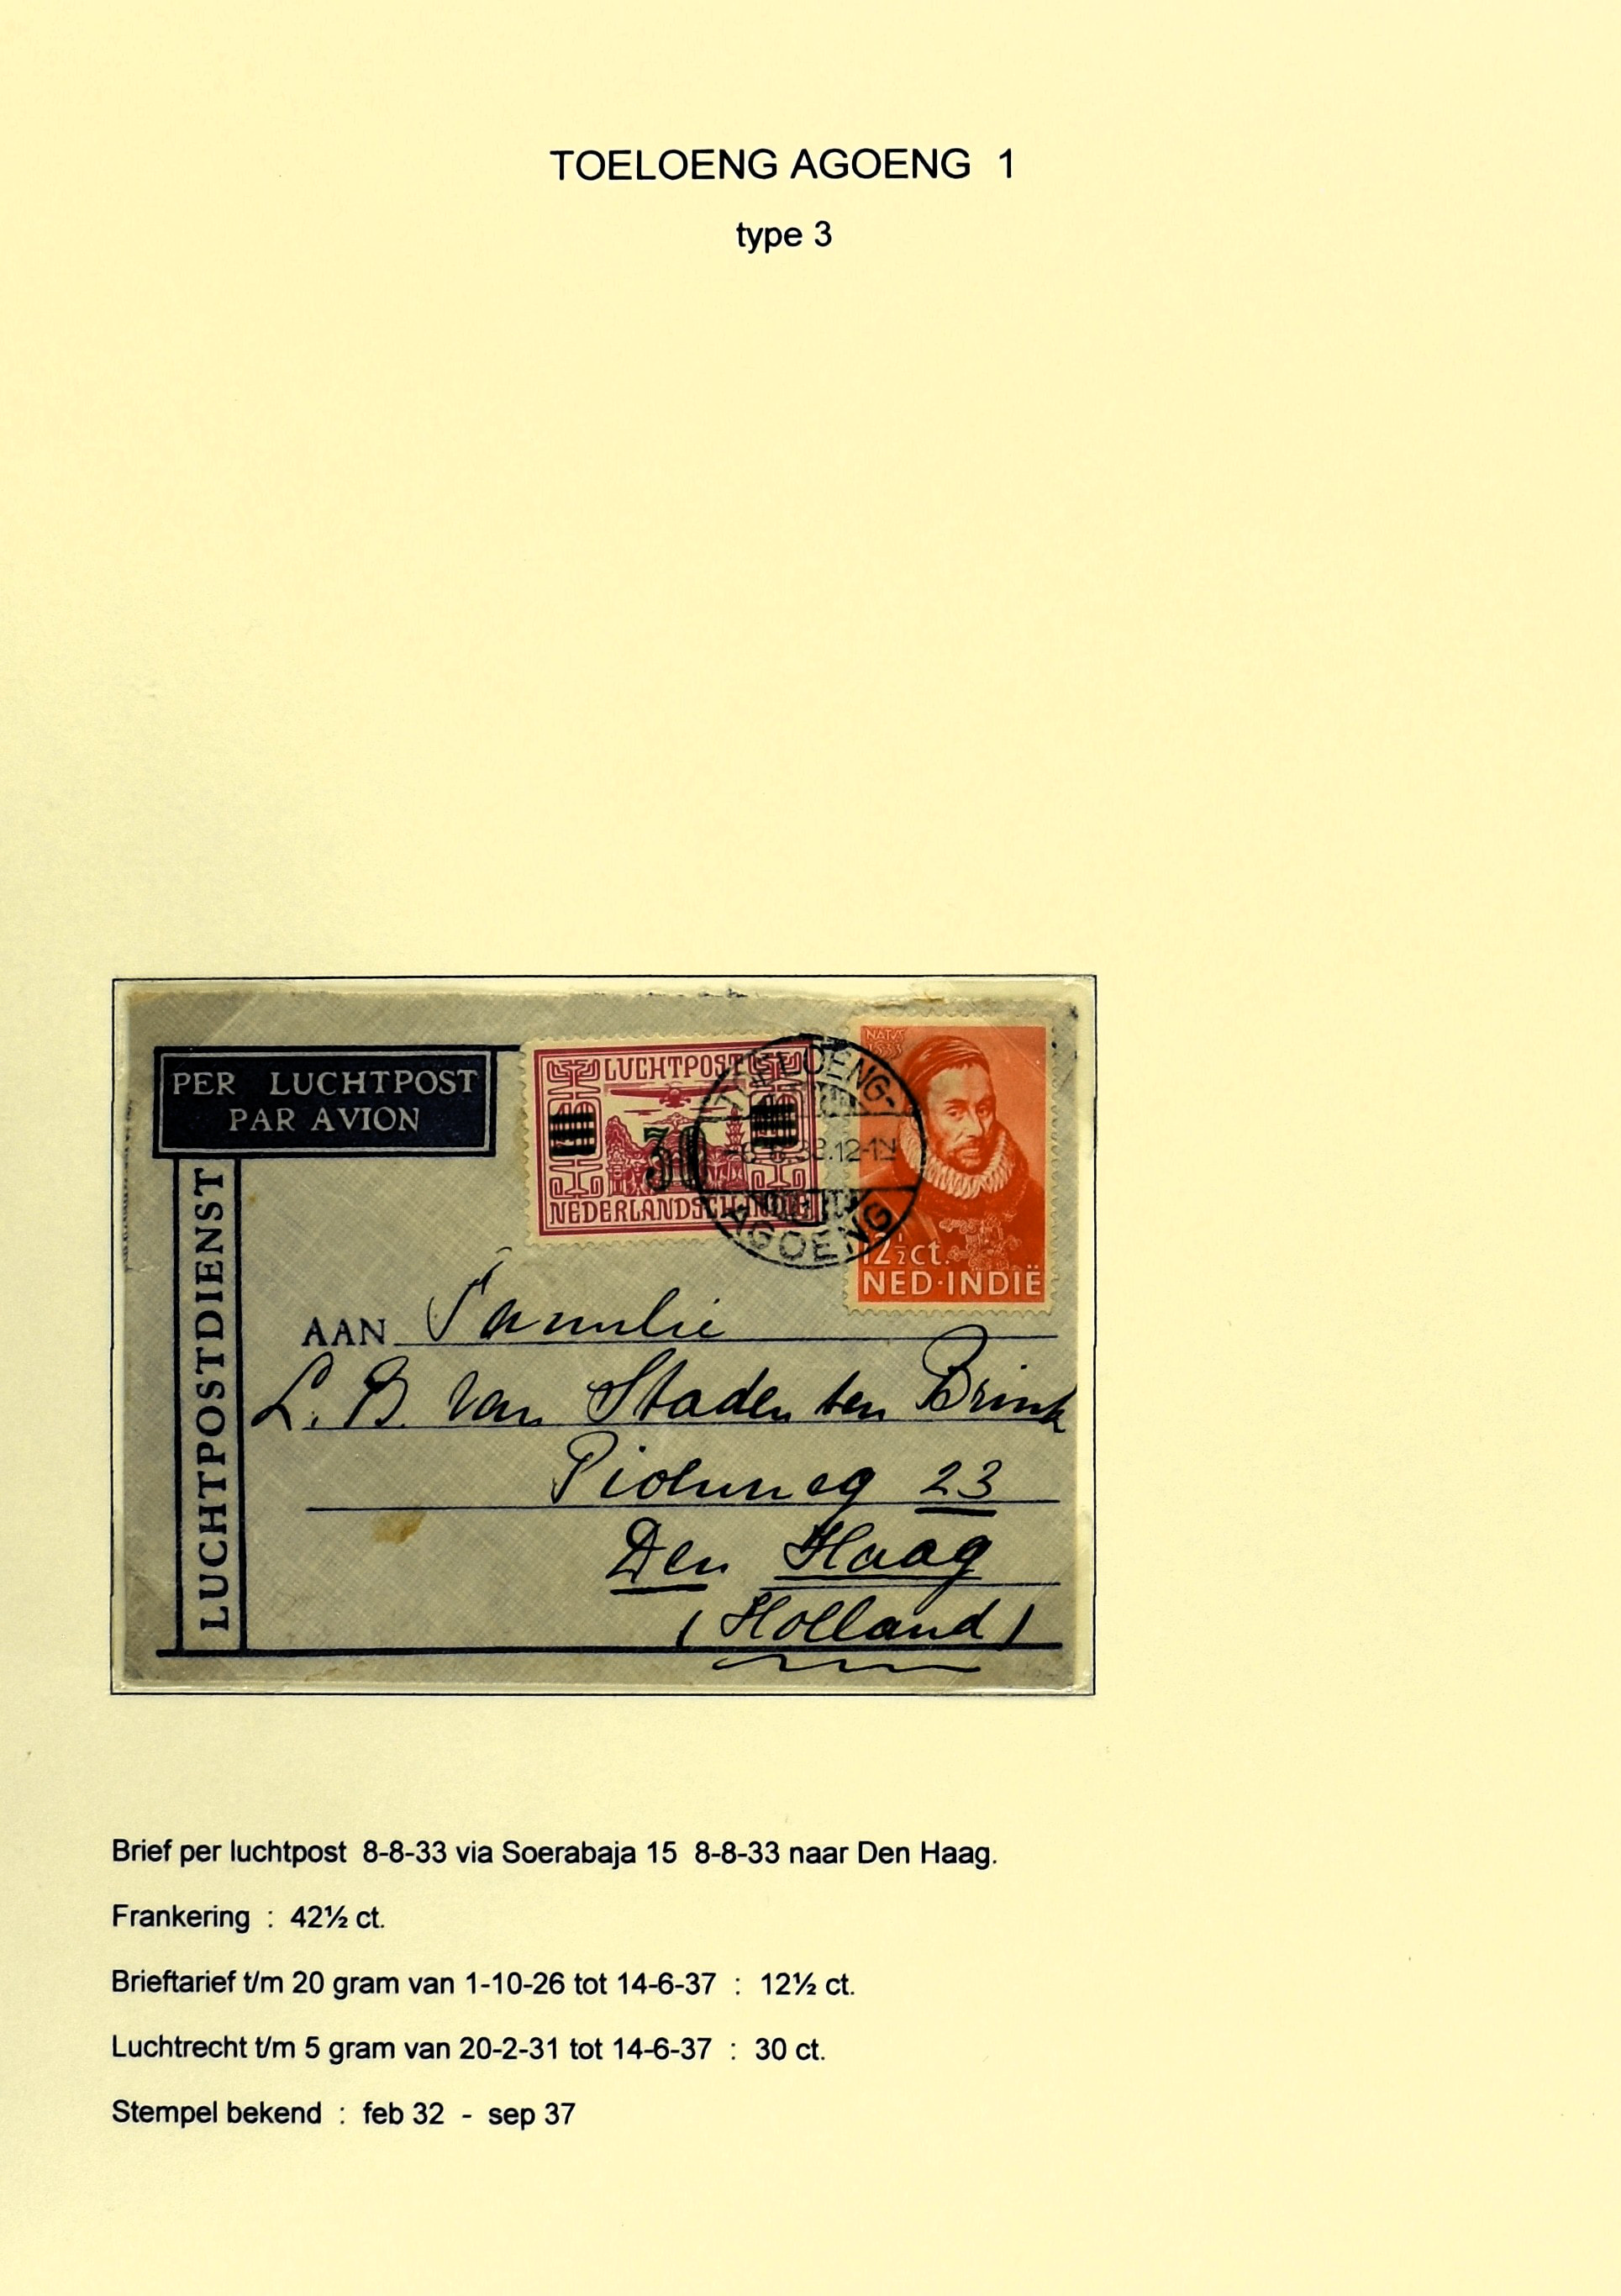 TOELOENG AGOENG 1
type 3
PER LUCHTPOST
PAR AVION
LUCHTPOSTDIENST
LUCHTPOST
30
NEDERLANDSCH-INDIË
TOELOENG-
.12-1N
AGOENG
NATUS
1533
12½ct.
NED·INDIË
AAN Familie
L. B. van Staden ten Brink
23
Den Haag
(Holland)
Brief per luchtpost 8-8-33 via Soerabaja 15 8-8-33 naar Den Haag.
Frankering : 42½ ct.
Brieftarief t/m 20 gram van 1-10-26 tot 14-6-37 : 12½ ct.
Luchtrecht t/m 5 gram van 20-2-31 tot 14-6-37 : 30 ct.
Stempel bekend : feb 32 - sep 37